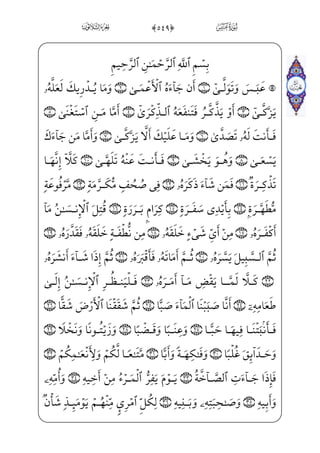 ﴿٥٤٩﴾
بِسْمِ اللَّهِ الرَّحْمَٰنِ الرَّحِيمِ
عَبَسَ وَتَوَلَّىٰٓ ١ أَن جَآءَهُ ٱلْأَعْمَىٰ ٢ وَمَا يُدْرِيكَ لَعَلَّهُۥ
يَزَّكَّىٰٓ ٣ أَوْ يَذَّكَّرُ فَتَنفَعَهُ ٱلذِّكْرَىٰٓ ٤ أَمَّا مَنِ ٱسْتَغْنَىٰ ٥
فَأَنتَ لَهُۥ تَصَدَّىٰ ٦ وَمَا عَلَيْكَ أَلَّا يَزَّكَّىٰ ٧ وَأَمَّا مَن جَآءَكَ
يَسْعَىٰ ٨ وَهُوَ يَخْشَىٰ ٩ فَأَنتَ عَنْهُ تَلَهَّىٰ ١٠ كَلَّآ إِنَّهَا
تَذْكِرَةٌ ١١ فَمَن شَآءَ ذَكَرَهُۥ ١٢ فِى صُحُفٍ مُّكَرَّمَةٍ ١٣ مَّرْفُوعَةٍ
مُّطَهَّرَةٍۭ ١٤ بِأَيْدِى سَفَرَةٍ ١٥ كِرَامٍۭ بَرَرَةٍ ١٦ قُتِلَ ٱلْإِنسَٰنُ مَآ
أَكْفَرَهُۥ ١٧ مِنْ أَىِّ شَىْءٍ خَلَقَهُۥ ١٨ مِن نُّطْفَةٍ خَلَقَهُۥ فَقَدَّرَهُۥ ١٩
ثُمَّ ٱلسَّبِيلَ يَسَّرَهُۥ ٢٠ ثُمَّ أَمَاتَهُۥ فَأَقْبَرَهُۥ ٢١ ثُمَّ إِذَا شَآءَ أَنشَرَهُۥ
٢٢ كَلَّا لَمَّا يَقْضِ مَآ أَمَرَهُۥ ٢٣ فَلْيَنظُرِ ٱلْإِنسَٰنُ إِلَىٰ
طَعَامِهِۦٓ ٢٤ أَنَّا صَبَبْنَا ٱلْمَآءَ صَبًّا ٢٥ ثُمَّ شَقَقْنَا ٱلْأَرْضَ شَقًّا ٢٦
فَأَنۢبَتْنَا فِيهَا حَبًّا ٢٧ وَعِنَبًا وَقَضْبًا ٢٨ وَزَيْتُونًا وَنَخْلًا ٢٩
وَحَدَآئِقَ غُلْبًا ٣٠ وَفَٰكِهَةً وَأَبًّا ٣١ مَّتَٰعًا لَّكُمْ وَلِأَنْعَٰمِكُمْ ٣٢
فَإِذَا جَآءَتِ ٱلصَّآخَّةُ ٣٣ يَوْمَ يَفِرُّ ٱلْمَرْءُ مِنْ أَخِيهِ ٣٤ وَأُمِّهِۦ
وَأَبِيهِ ٣٥ وَصَٰحِبَتِهِۦ وَبَنِيهِ ٣٦ لِكُلِّ ٱمْرِئٍ مِّنْهُمْ يَوْمَئِذٍ شَأْنٌ